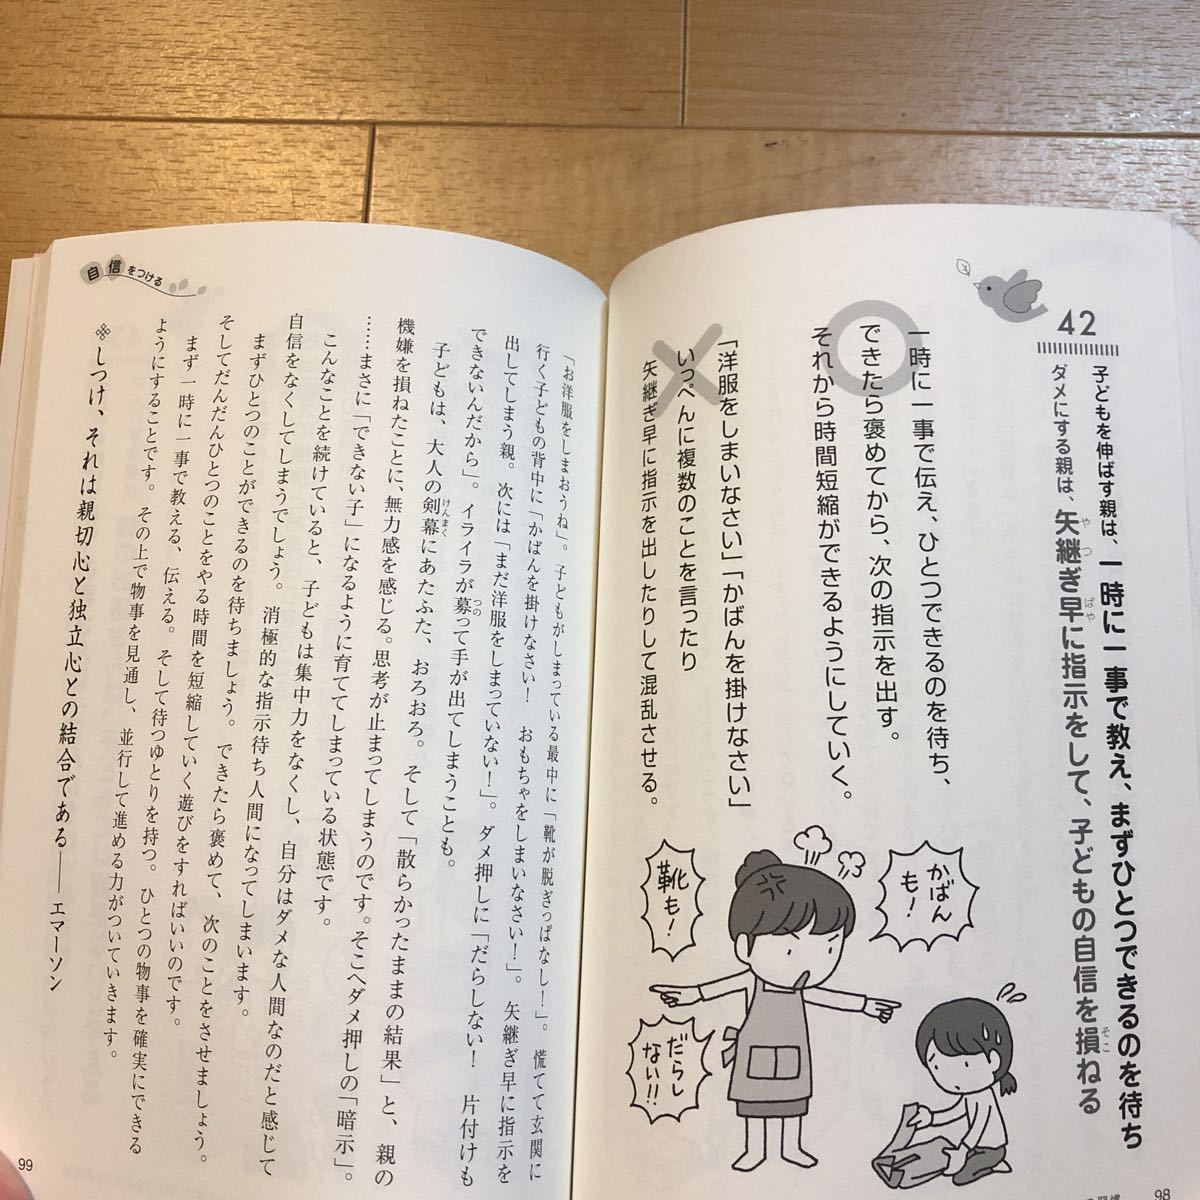 42
子どもを伸ばす親は、一時に一事で教え、まずひとつできるのを待ち
ダメにする親は、矢継ぎ早に指示をして、子どもの自信を損ねる
一時に一事で伝え、ひとつできるのを待ち、
できたら褒めてから、次の指示を出す。
それから時間短縮ができるようにしていく。
「洋服をしまいなさい」「かばんを掛けなさい」
いっぺんに複数のことを言ったり
矢継ぎ早に指示を出したりして混乱させる。
かばん
も!
靴も!
だらし
ない!!
98
自信をつける
「お洋服をしまおうね」。子どもがしまっている最中に「靴が脱ぎっぱなし!」。慌てて玄関に
行く子どもの背中に「かばんを掛けなさい! おもちゃをしまいなさい!」。矢継ぎ早に指示を
出してしまう親。次には「まだ洋服をしまっていない!」。ダメ押しに「だらしない! 片付けも
できないんだから」。イライラが募って手が出てしまうことも。
子どもは、大人の剣幕にあたふた、おろおろ。そして「散らかったままの結果」と、親の
機嫌を損ねたことに、無力感を感じる。思考が止まってしまうのです。そこへダメ押しの「暗示」。
……まさに「できない子」になるように育ててしまっている状態です。
こんなことを続けていると、子どもは集中力をなくし、自分はダメな人間なのだと感じて
自信をなくしてしまうでしょう。消極的な指示待ち人間になってしまいます。
まずひとつのことができるのを待ちましょう。できたら褒めて、次のことをさせましょう。
そしてだんだんひとつのことをやる時間を短縮していく遊びをすればいいのです。
まず一時に一事で教える、伝える。そして待つゆとりを持つ。ひとつの物事を確実にできる
ようにすることです。その上で物事を見通し、並行して進める力がついていきます。
しつけ、それは親切心と独立心との結合である——エマーソン
99